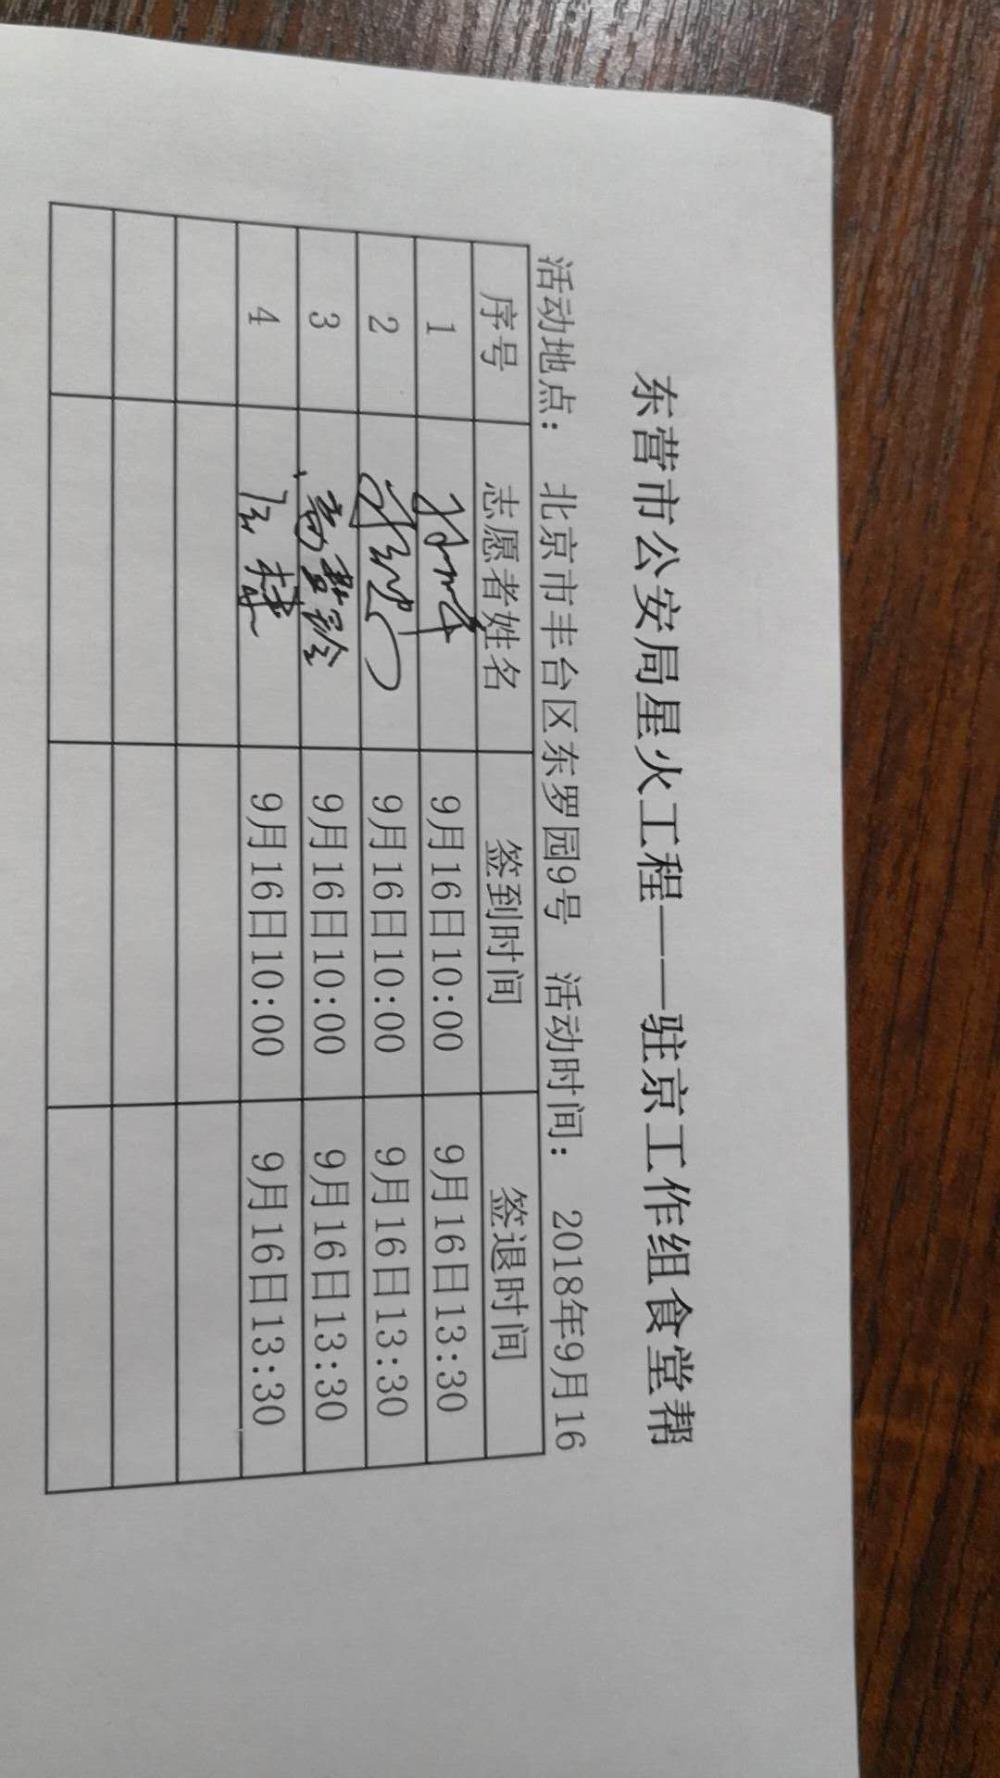 东营市公安局星火工程——驻京工作组食堂帮
活动地点： 北京市丰台区东罗园9号 活动时间： 2018年9月16
序号 志愿者姓名 签到时间 签退时间
1 9月16日10:00 9月16日13:30
2 9月16日10:00 9月16日13:30
3 9月16日10:00 9月16日13:30
4 9月16日10:00 9月16日13:30